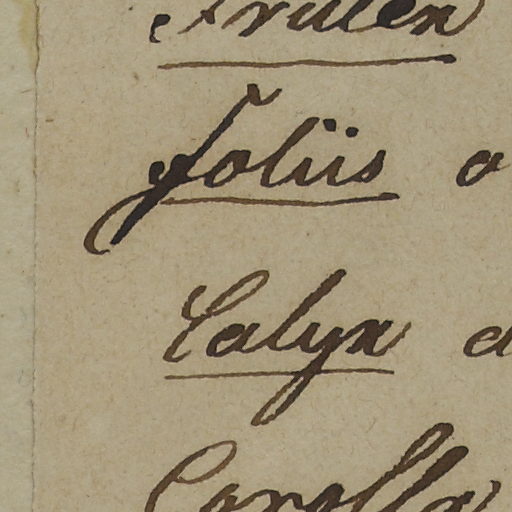 Frutex
Foliis
Calyx
Corolla